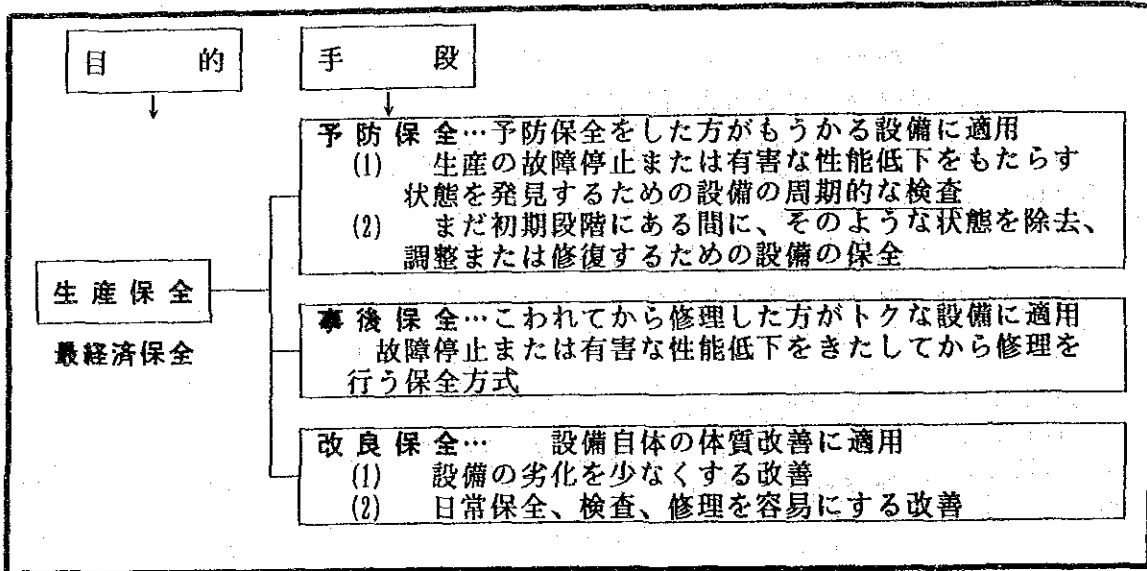 目的
手段
予防保全…予防保全をした方がもうかる設備に適用
(1) 生産の故障停止または有害な性能低下をもたらす
状態を発見するための設備の周期的な検査
(2) まだ初期段階にある間に、そのような状態を除去、
調整または修復するための設備の保全
生産保全
最経済保全
事後保全…こわれてから修理した方がトクな設備に適用
故障停止または有害な性能低下をきたしてから修理を
行う保全方式
改良保全… 設備自体の体質改善に適用
(1) 設備の劣化を少なくする改善
(2) 日常保全、検査、修理を容易にする改善